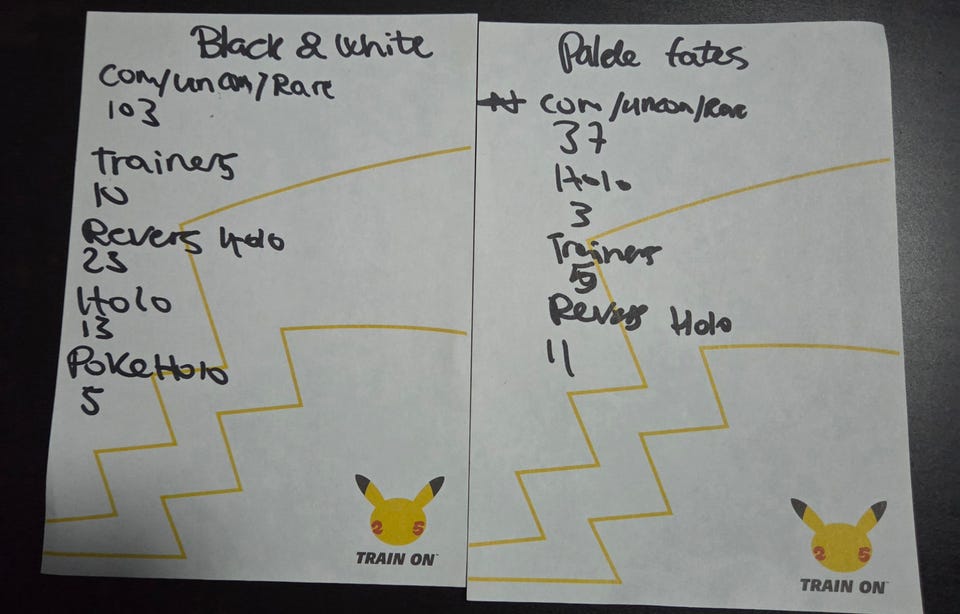 Black & White
Com/uncom/Rare
103
Trainers
10
Revers Holo
23
Holo
13
PokeHolo
5
25
TRAIN ON™
Palde fates
com/uncon/rare
37
Holo
3
Trainers
5
Revers Holo
11
25
TRAIN ON™